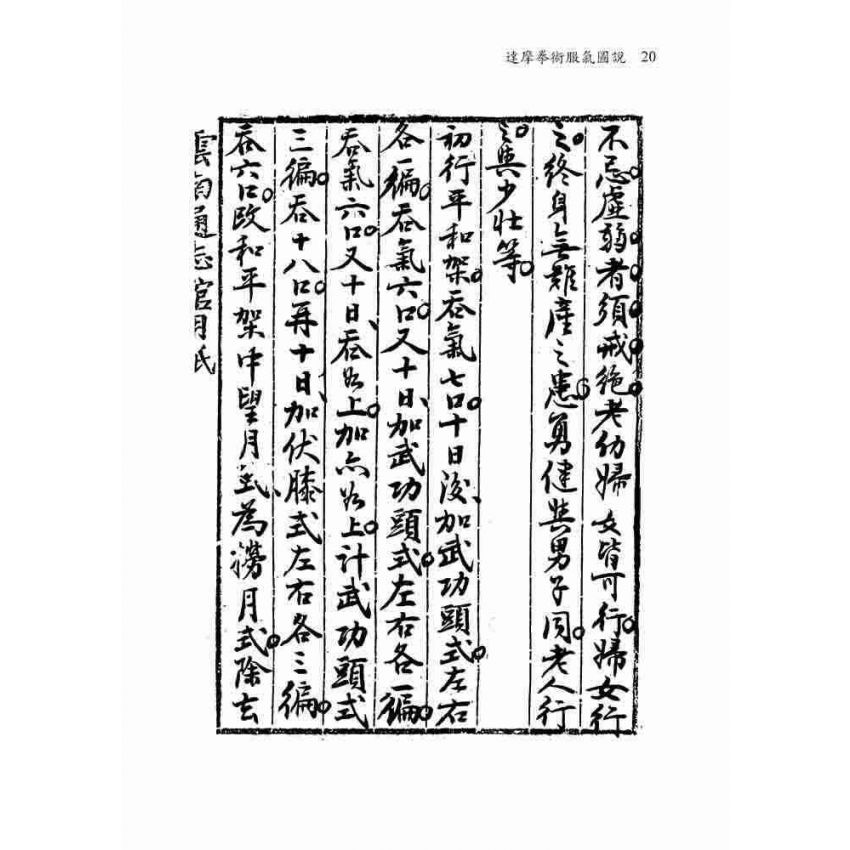 達摩拳術服氣圖說 20
不忌。虛弱者須戒絕。老幼婦女皆可行。婦女行
之。終身無難產之患。勇健與男子同。老人行
之。與少壯等。
初行平和架。吞氣七口。十日後、加武功頭式。左右
各一編。吞氣六口。又十日、加武功頭式。左右各一編。
吞氣六口。又十日、吞如上。加亦如上。計武功頭式
三編。吞十八口。再十日、加伏膝式左右各三編。
吞六口。改和平架中望月式、為撈月式。除去
雲南通志館用紙